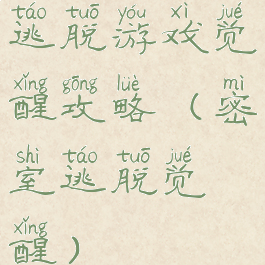 táo tuō yóu xì jué
逃脱游戏觉
xǐng gōng lüè mì
醒攻略（密
shì táo tuō jué
室逃脱觉
xǐng
醒）